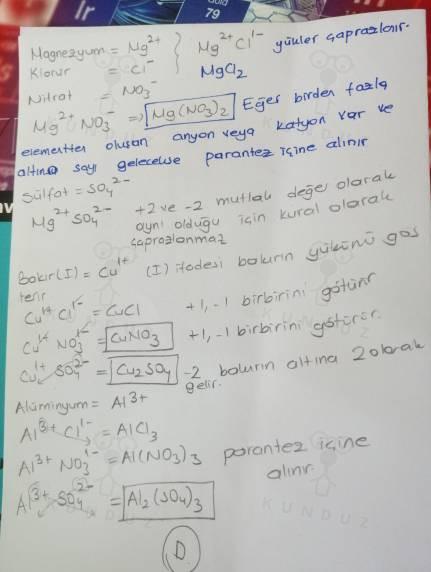 Ir
79
Magnezyum = Mg²⁺ } Mg²⁺Cl¹⁻ yükler çaprazlanır.
Klorür = Cl⁻ MgCl₂
Nitrat = NO₃⁻
Mg²⁺ NO₃⁻ => Mg(NO₃)₂ Eğer birden fazla
elementten oluşan anyon veya katyon var ve
altına sayı gelecekse parantez içine alınır
Sülfat = SO₄²⁻
Mg²⁺ SO₄²⁻ +2 ve -2 mutlak değer olarak
aynı olduğu için kural olarak
çaprazlanmaz
Bakır(I) = Cu¹⁺ (I) ifadesi bakırın yükünü gös
terir
Cu¹⁺ Cl¹⁻ = CuCl +1, -1 birbirini götürür
Cu¹⁺ NO₃¹⁻ = CuNO₃ +1, -1 birbirini götürür.
Cu¹⁺ SO₄²⁻ = Cu₂SO₄ -2 bakırın altına 2 olarak
gelir.
Alüminyum = Al³⁺
Al³⁺ Cl¹⁻ = AlCl₃
Al³⁺ NO₃¹⁻ = Al(NO₃)₃ parantez içine
alınır.
Al³⁺ SO₄²⁻ = Al₂(SO₄)₃
KUNDUZ
D